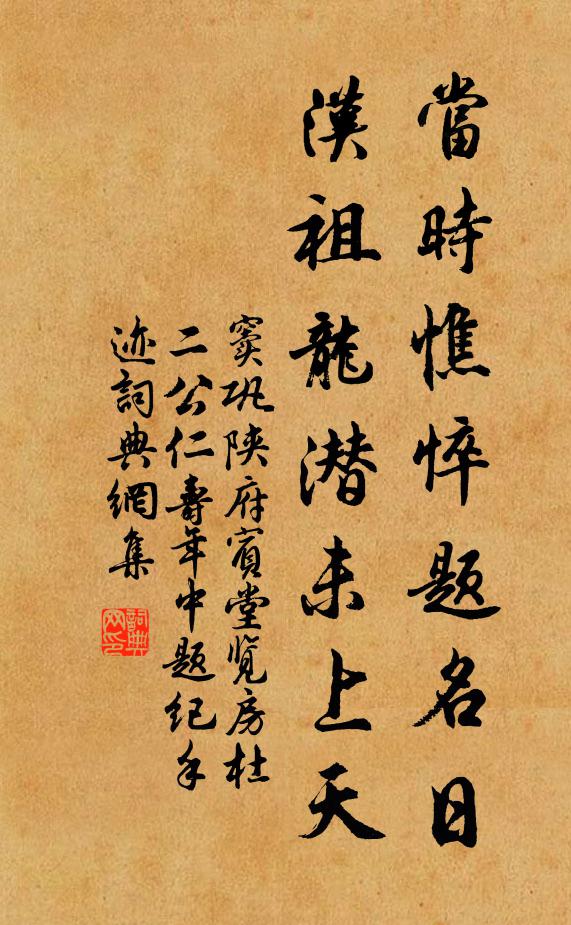 當時憔悴題名日
漢祖龍潜未上天
竇巩陕府賓堂覧房杜
二公仁壽年中題纪手
迹詞典網集
詞典
网印